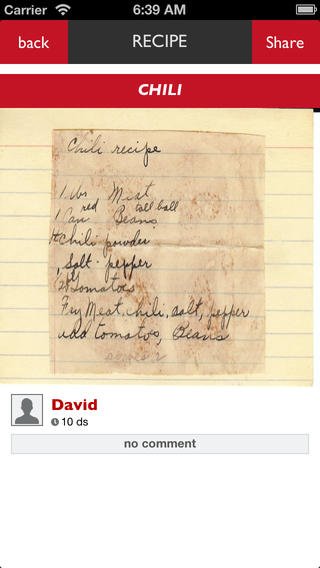 Carrier 6:39 AM
back RECIPE Share
CHILI
Chili recipe
1 lbs Meat
red
1 Can Beans
Chili powder
, Salt . pepper
Tomatoes
Fry Meat, chili, salt, pepper
add tomatos, Beans
David
10 ds
no comment